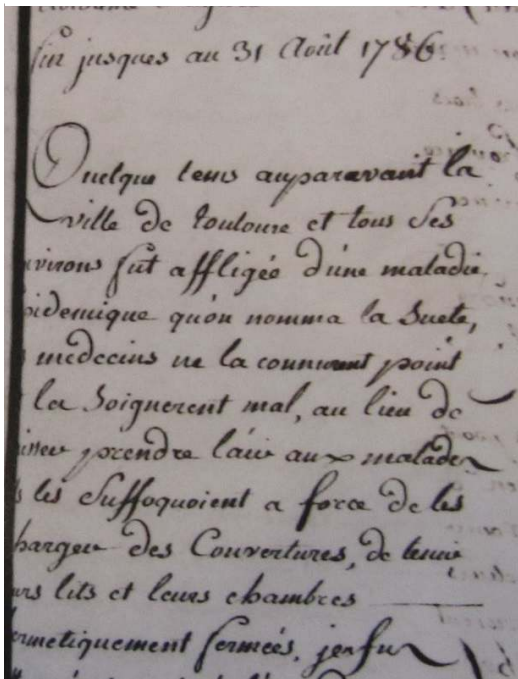 fin jusques au 31 Août 1786.
Quelque tems auparavant la
ville de toulouse et tous ses
nvirons fut affligée d'une maladie
pidemique qu'on nomma la Suete,
s medecins ne la connurent point
la Soignerent mal, au lieu de
isser prendre l'air aux malades
ls les Suffoquoient a force de les
harger des Couvertures, de tenir
urs lits et leurs chambres
ermetiquement fermées, j'en fu